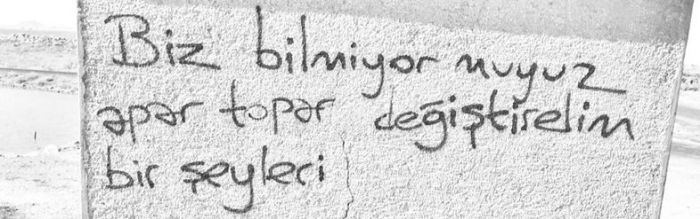 Biz bilmiyor muyuz
apar topar değiştirelim
bir şeyleri